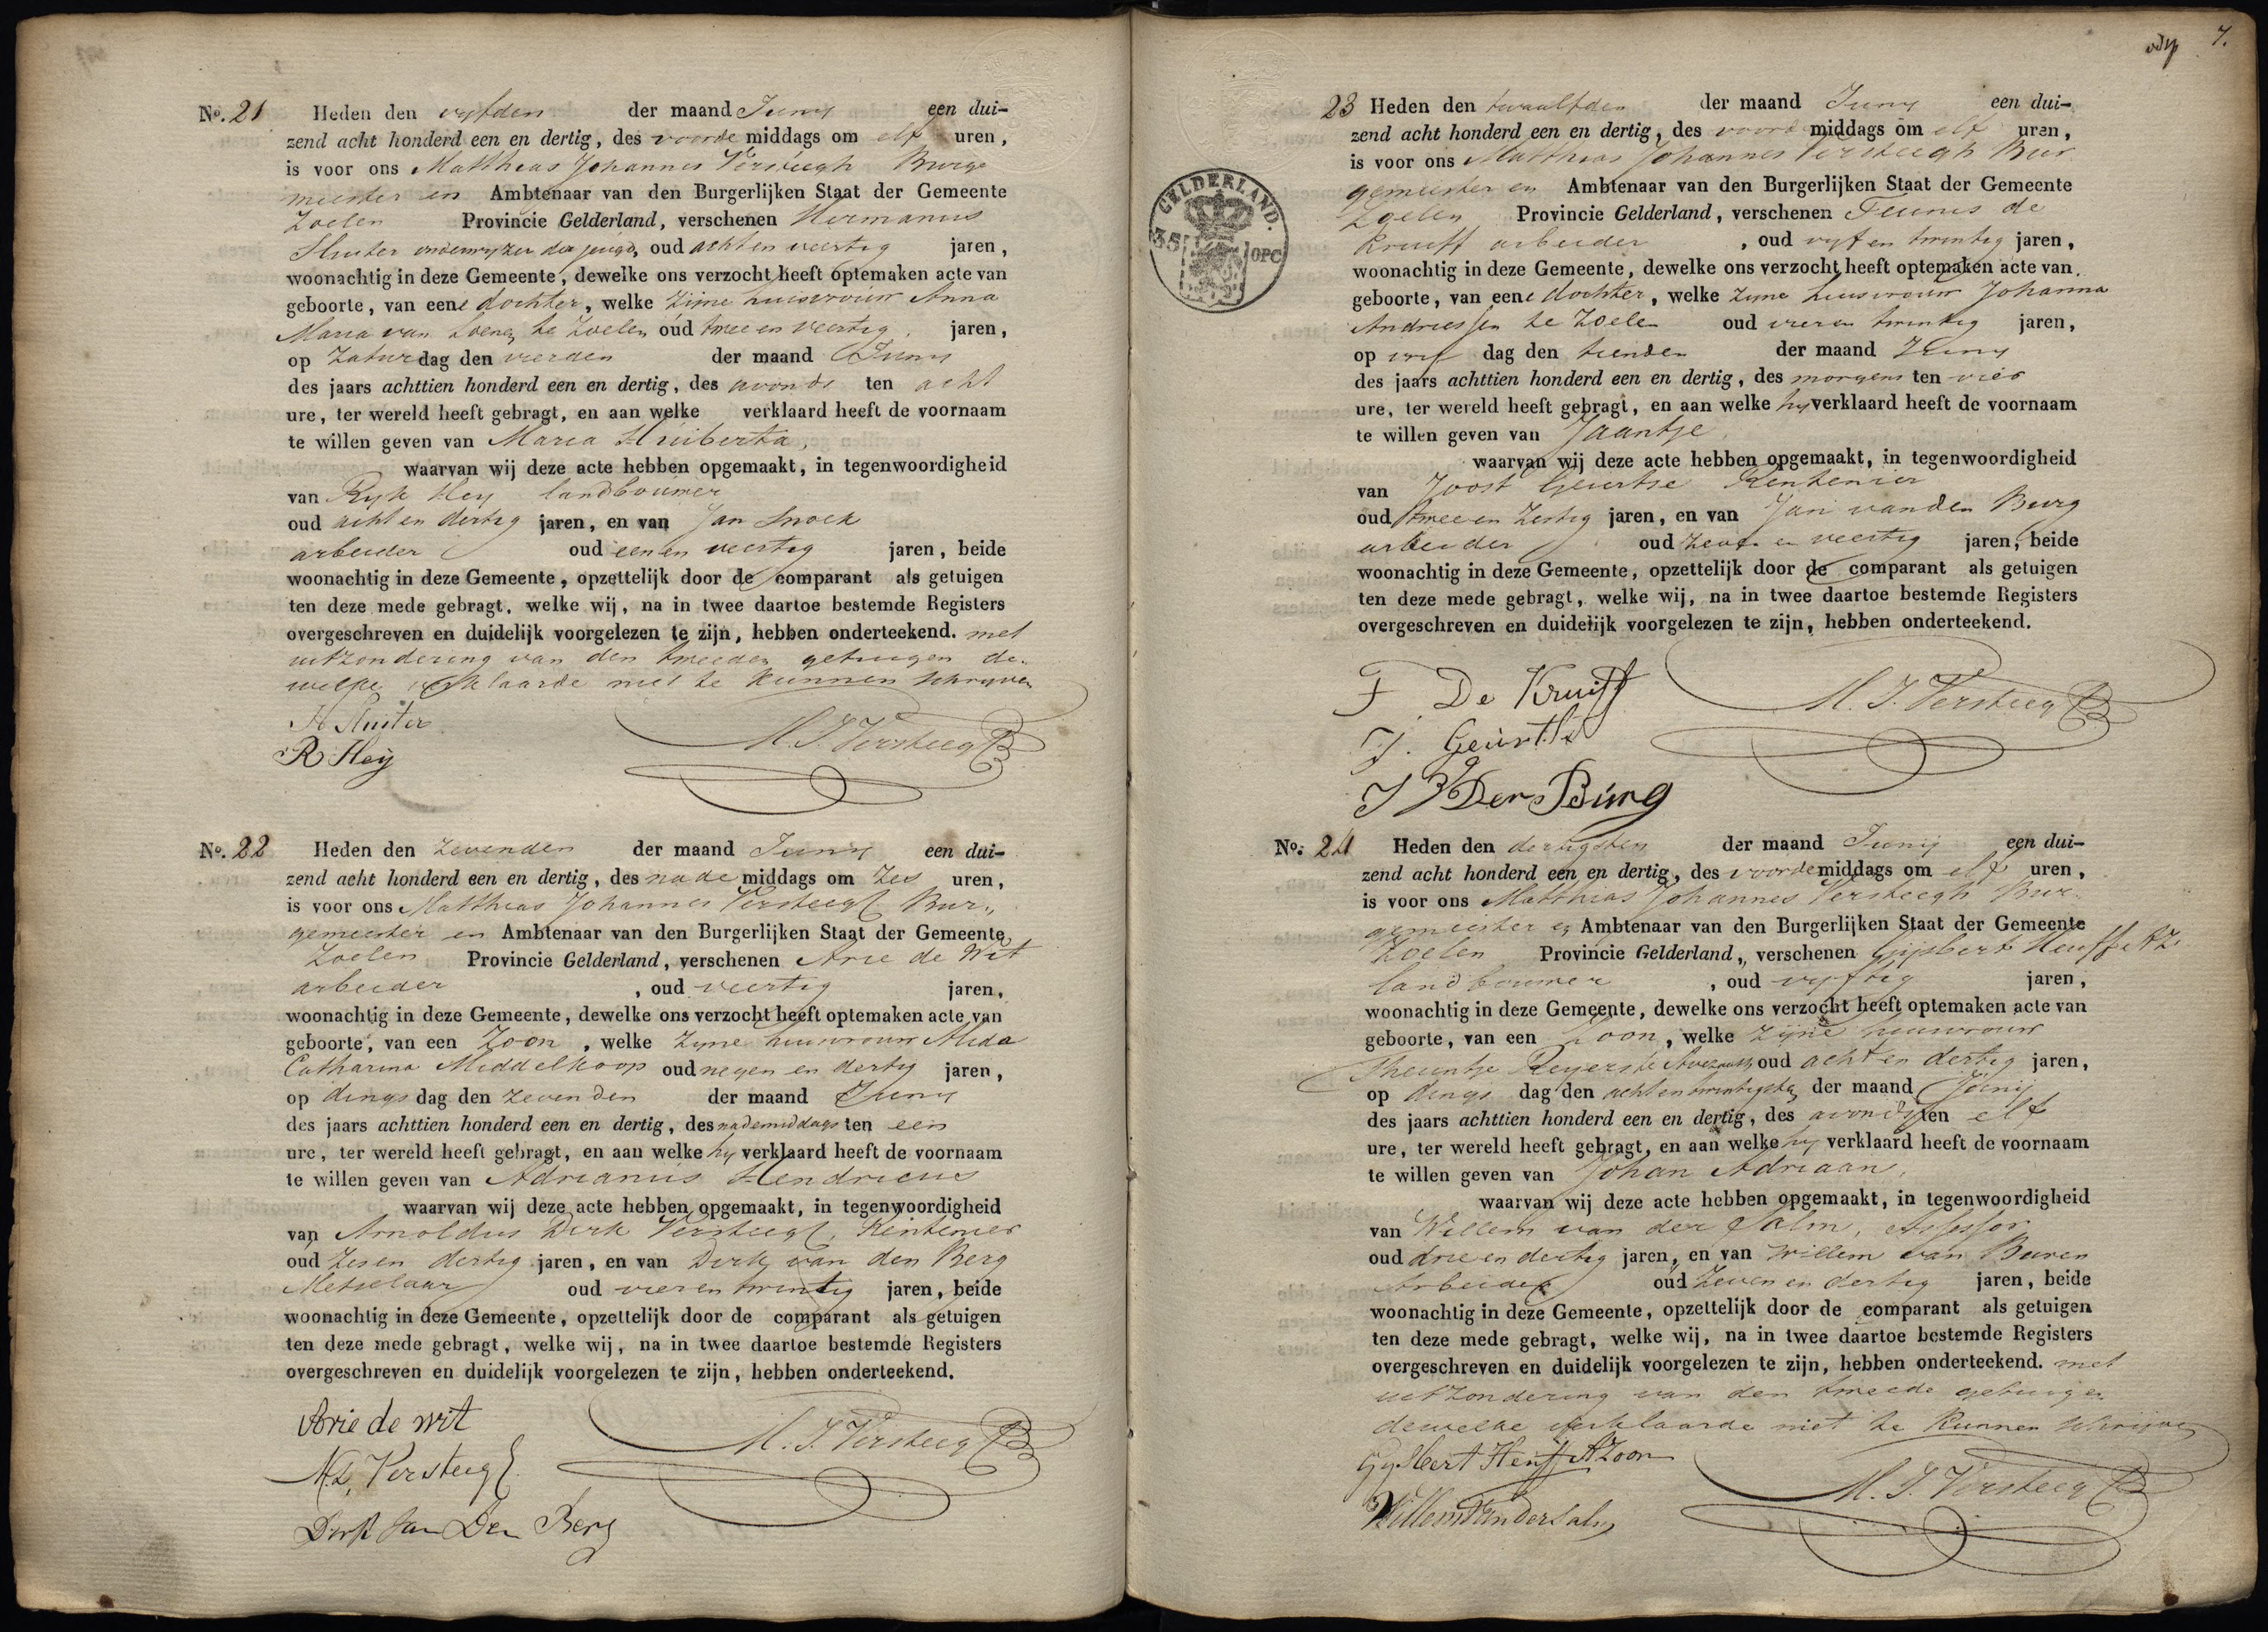 No. 21 Heden den vyfden der maand Juny een dui-
zend acht honderd een en dertig, des voorde middags om elf uren,
is voor ons Matthias Johannes Versteegh Burge
meester en Ambtenaar van den Burgerlijken Staat der Gemeente
Zoelen Provincie Gelderland, verschenen Hermanus
Sluiter onderwyzer der jeugd, oud acht en veertig jaren,
woonachtig in deze Gemeente, dewelke ons verzocht heeft optemaken acte van
geboorte, van eene dochter, welke zijne huisvrouw Anna
Maria van te Zoelen oud twee en veertig jaren,
op Zaturdag den vierden der maand Juny
des jaars achttien honderd een en dertig, des avonds ten acht
ure, ter wereld heeft gebragt, en aan welke verklaard heeft de voornaam
te willen geven van Maria Huiberta,
waarvan wij deze acte hebben opgemaakt, in tegenwoordigheid
van Ryk Hey landbouwer
oud acht en dertig jaren, en van Jan Snoek
arbeider oud een en veertig jaren, beide
woonachtig in deze Gemeente, opzettelijk door de comparant als getuigen
ten deze mede gebragt, welke wij, na in twee daartoe bestemde Registers
overgeschreven en duidelijk voorgelezen te zijn, hebben onderteekend. met
uitzondering van den tweeden getuigen de-
welke verklaarde niet te kunnen schryven
H Sluiter
M. J. Versteeg B
R Hey
No. 22 Heden den zevenden der maand Juny een dui-
zend acht honderd een en dertig, des nade middags om zes uren,
is voor ons Matthias Johannes Versteegh Bur-
gemeester en Ambtenaar van den Burgerlijken Staat der Gemeente
Zoelen Provincie Gelderland, verschenen Arie de Wit
arbeider, oud veertig jaren,
woonachtig in deze Gemeente, dewelke ons verzocht heeft optemaken acte van
geboorte, van een Zoon, welke zyne huisvrouw Alida
Catharina Middelkoop oud negen en dertig jaren,
op dings dag den zevenden der maand Juny
des jaars achttien honderd een en dertig, des nademiddags ten een
ure, ter wereld heeft gebragt, en aan welke hy verklaard heeft de voornaam
te willen geven van Adrianus Hendricus
waarvan wij deze acte hebben opgemaakt, in tegenwoordigheid
van Arnoldus Dirk Versteegh, Rentenier
oud zes en dertig jaren, en van Dirk van den Berg
Metselaar oud vier en twintig jaren, beide
woonachtig in deze Gemeente, opzettelijk door de comparant als getuigen
ten deze mede gebragt, welke wij, na in twee daartoe bestemde Registers
overgeschreven en duidelijk voorgelezen te zijn, hebben onderteekend.
Arie de wit
M. J. Versteeg B
Versteegh
Dirk van Den Berg
7.
23 Heden den twaalfden der maand Juny een dui-
zend acht honderd een en dertig, des voorde middags om elf uren,
is voor ons Matthias Johannes Versteegh Bur
gemeester en Ambtenaar van den Burgerlijken Staat der Gemeente
Zoelen Provincie Gelderland, verschenen Teunis de
Kruiff arbeider, oud vyf en twintig jaren,
woonachtig in deze Gemeente, dewelke ons verzocht heeft optemaken acte van
geboorte, van eene dochter, welke zyne huisvrouw Johanna
Andriessen te Zoelen oud vier en twintig jaren,
op vry dag den tienden der maand Juny
des jaars achttien honderd een en dertig, des morgens ten vier
ure, ter wereld heeft gebragt, en aan welke hy verklaard heeft de voornaam
te willen geven van Jaantje,
waarvan wij deze acte hebben opgemaakt, in tegenwoordigheid
van Joost Geurtse Rentenier
oud twee en zestig jaren, en van Jan vanden Burg
arbeider oud zeven en veertig jaren, beide
woonachtig in deze Gemeente, opzettelijk door de comparant als getuigen
ten deze mede gebragt, welke wij, na in twee daartoe bestemde Registers
overgeschreven en duidelijk voorgelezen te zijn, hebben onderteekend.
GELDERLAND.
35 OPC
F De Kruiff
M. J. Versteeg B
J. Geurtse
J V Der Burg
No. 24 Heden den dertigsten der maand Junij een dui-
zend acht honderd een en dertig, des voordemiddags om elf uren,
is voor ons Matthias Johannes Versteegh Bur-
gemeester en Ambtenaar van den Burgerlijken Staat der Gemeente
Zoelen Provincie Gelderland, verschenen Gijsbert Heuff AZ
landbouwer, oud vyftig jaren,
woonachtig in deze Gemeente, dewelke ons verzocht heeft optemaken acte van
geboorte, van een Zoon, welke zijne huisvrouw
Theuntje Reyers te Avezaath oud acht en dertig jaren,
op dings dag den acht en twintigste der maand Junij
des jaars achttien honderd een en dertig, des avonds ten elf
ure, ter wereld heeft gebragt, en aan welke hy verklaard heeft de voornaam
te willen geven van Johan Adriaan,
waarvan wij deze acte hebben opgemaakt, in tegenwoordigheid
van Willem van der Salm, Assessor
oud drie en dertig jaren, en van Willem van Buren
Arbeider oud zeven en dertig jaren, beide
woonachtig in deze Gemeente, opzettelijk door de comparant als getuigen
ten deze mede gebragt, welke wij, na in twee daartoe bestemde Registers
overgeschreven en duidelijk voorgelezen te zijn, hebben onderteekend. met
uitzondering van den tweede getuigen
dewelke verklaarde niet te kunnen schrijven
Gysbert Heuff AZoon
M. J. Versteeg B
Willem van der Salm